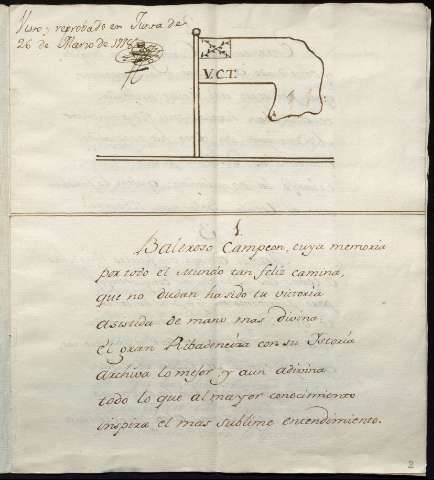 Visto, y reprobado en Junta de
26 de Marzo de
V.C.T.
A
1.
Baleroso Campeon, cuya memoria
por todo el Mundo tan feliz camina,
que no dudan ha sido tu victoria
asistida de mano mas divina.
el gran Ribadeneira con su Istoria
archiva lo mejor; y aun adivina
todo lo que al mayor conocimiento
inspira el mas sublime entendimiento.
2